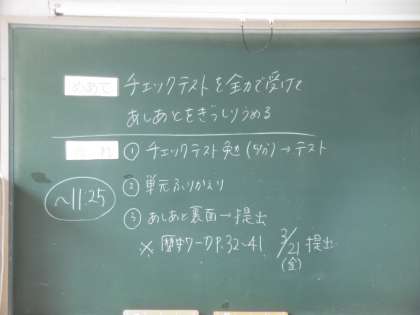 めあて チェックテストを全力で受けて
あしあとをぎっしりうめる
① チェックテスト勉(5分)→テスト
~11:25
② 単元ふりかえり
③ あしあと裏面→提出
※ 歴史ワークP.32~41 2/21(金) 提出